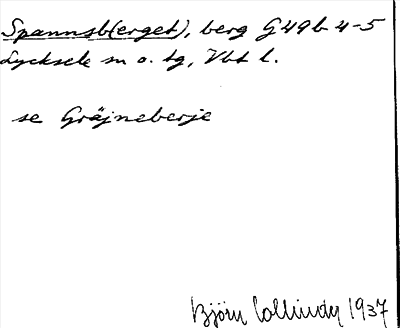 Spannsb(erget), berg G49b 4-5
Lycksele sn o. tg, Vbt l.
se Gräjneberje
Björn Collinder 1937